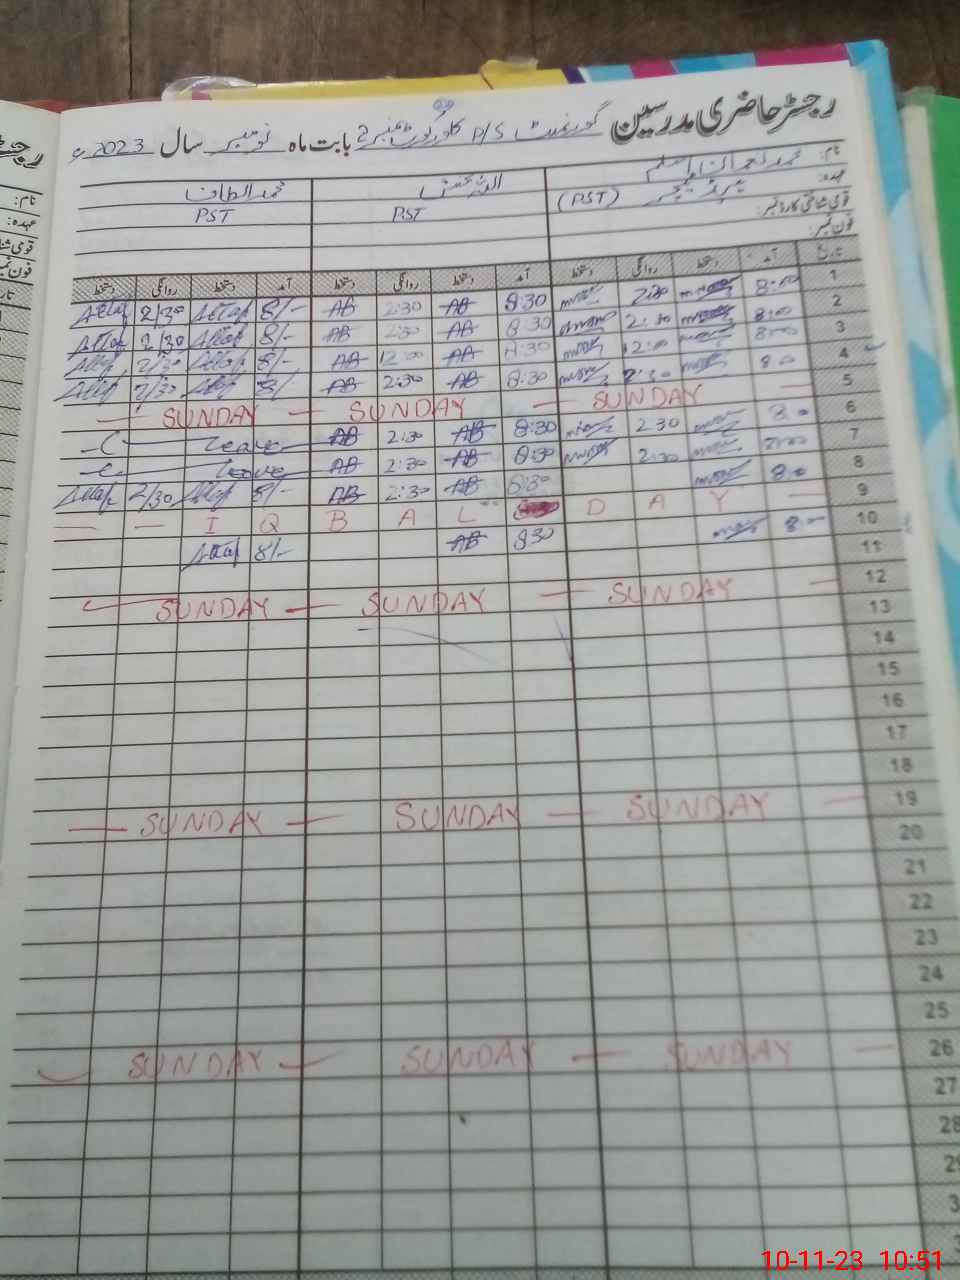 رجسٹر حاضری مدرسین گورنمنٹ P/S کلورکوٹ نمبر 2 بابت ماہ نومبر سال 2023ء
نام: محمد اسلم محمد الطاف
عہدہ: (PST) PST PST
قومی شناختی کارڈ نمبر:
فون نمبر:
تاریخ آمد دستخط روانگی دستخط آمد دستخط روانگی دستخط آمد دستخط روانگی دستخط
1 8:00 2:30 8:30 AB 2:30 AB 8/- Altaf 2/30 Altaf
2 8:00 2:30 8:30 AB 2:30 AB 8/- Altaf 2/30 Altaf
3 8:00 12:00 8:30 AB 12:00 AB 8/- Altaf Altaf
4 8:00 2:30 8:30 AB 2:30 AB 8/- Altaf 2/30 Altaf
5 — SUNDAY — SUNDAY — SUNDAY
6 8:00 2:30 8:30 AB 2:30 AB Leave C
7 8:00 2:30 8:30 AB 2:30 AB Leave
8 8:00 8:30 AB 2:30 AB 8/- Altaf 2/30 Altaf
9 — — I Q B A L D A Y —
10 8:00 830 AB 8/- Altaf
11
12 — SUNDAY — SUNDAY — SUNDAY —
13
14
15
16
17
18
19 — SUNDAY — SUNDAY — SUNDAY —
20
21
22
23
24
25
26 — SUNDAY — SUNDAY — SUNDAY —
27
28
10-11-23 10:51